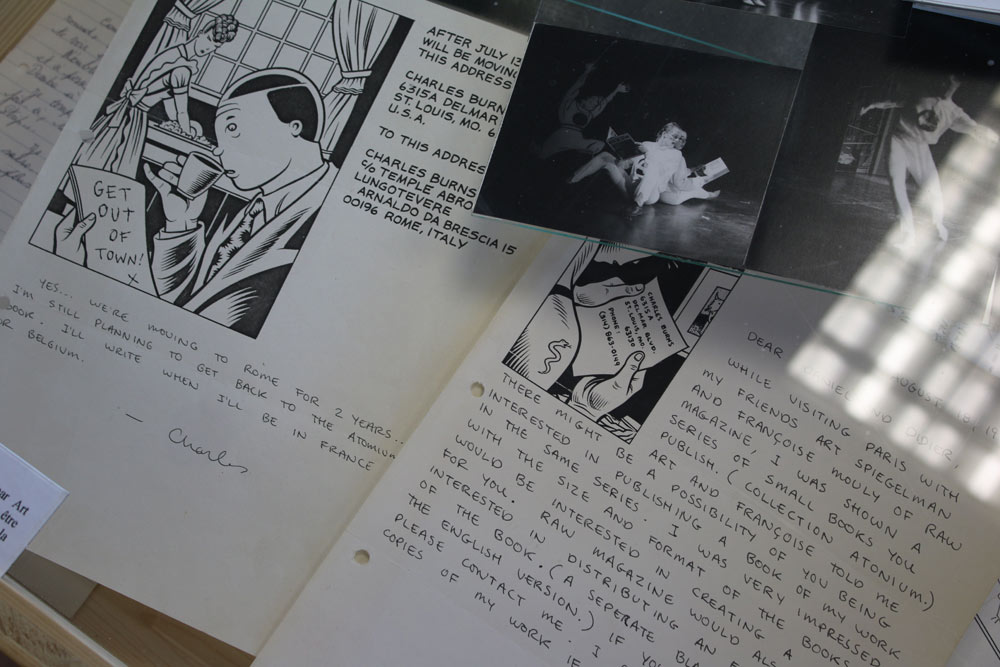 GET
OUT
OF
TOWN!
X
AFTER JULY 13
WILL BE MOVING
THIS ADDRESS
CHARLES BURN
6315A DELMAR
ST. LOUIS, MO. 6
U.S.A.
TO THIS ADDRES
CHARLES BURNS
C/O TEMPLE ABRO
LUNGOTEVERE
ARNALDO DA BRESCIA 15
00196 ROME, ITALY
YES... WE'RE MOVING TO ROME FOR 2 YEARS...
I'M STILL PLANNING TO GET BACK TO THE ATOMIUM
BOOK. I'LL WRITE WHEN I'LL BE IN FRANCE
OR BELGIUM.
— Charles
CHARLES BURNS
6315A
DELMAR BLVD.
ST. LOUIS, MO.
63130
PHONE:
(314) 863-0149
AUGUST
DEAR DIDIER,
WHILE VISITING PARIS WITH
MY FRIENDS ART SPIEGELMAN
AND FRANÇOISE MOULY OF RAW
MAGAZINE, I WAS SHOWN A
SERIES OF SMALL BOOKS YOU
PUBLISH. (COLLECTION ATONIUM.)
ART AND FRANÇOISE TOLD ME
THERE MIGHT BE A POSSIBILITY OF YOU BEING
INTERESTED IN PUBLISHING A BOOK OF MY WORK
IN THE SAME SERIES. I WAS VERY IMPRESSED
WITH THE SIZE AND FORMAT OF THE BOOKS
WOULD BE INTERESTED IN CREATING A
FOR YOU. RAW MAGAZINE WOULD ALS
INTERESTED IN DISTRIBUTING AN
OF THE BOOK. (A SEPERATE BLA
THE ENGLISH VERSION.) IF YOU
PLEASE CONTACT ME. I
COPIES OF MY WORK IF
ar Art
être
la